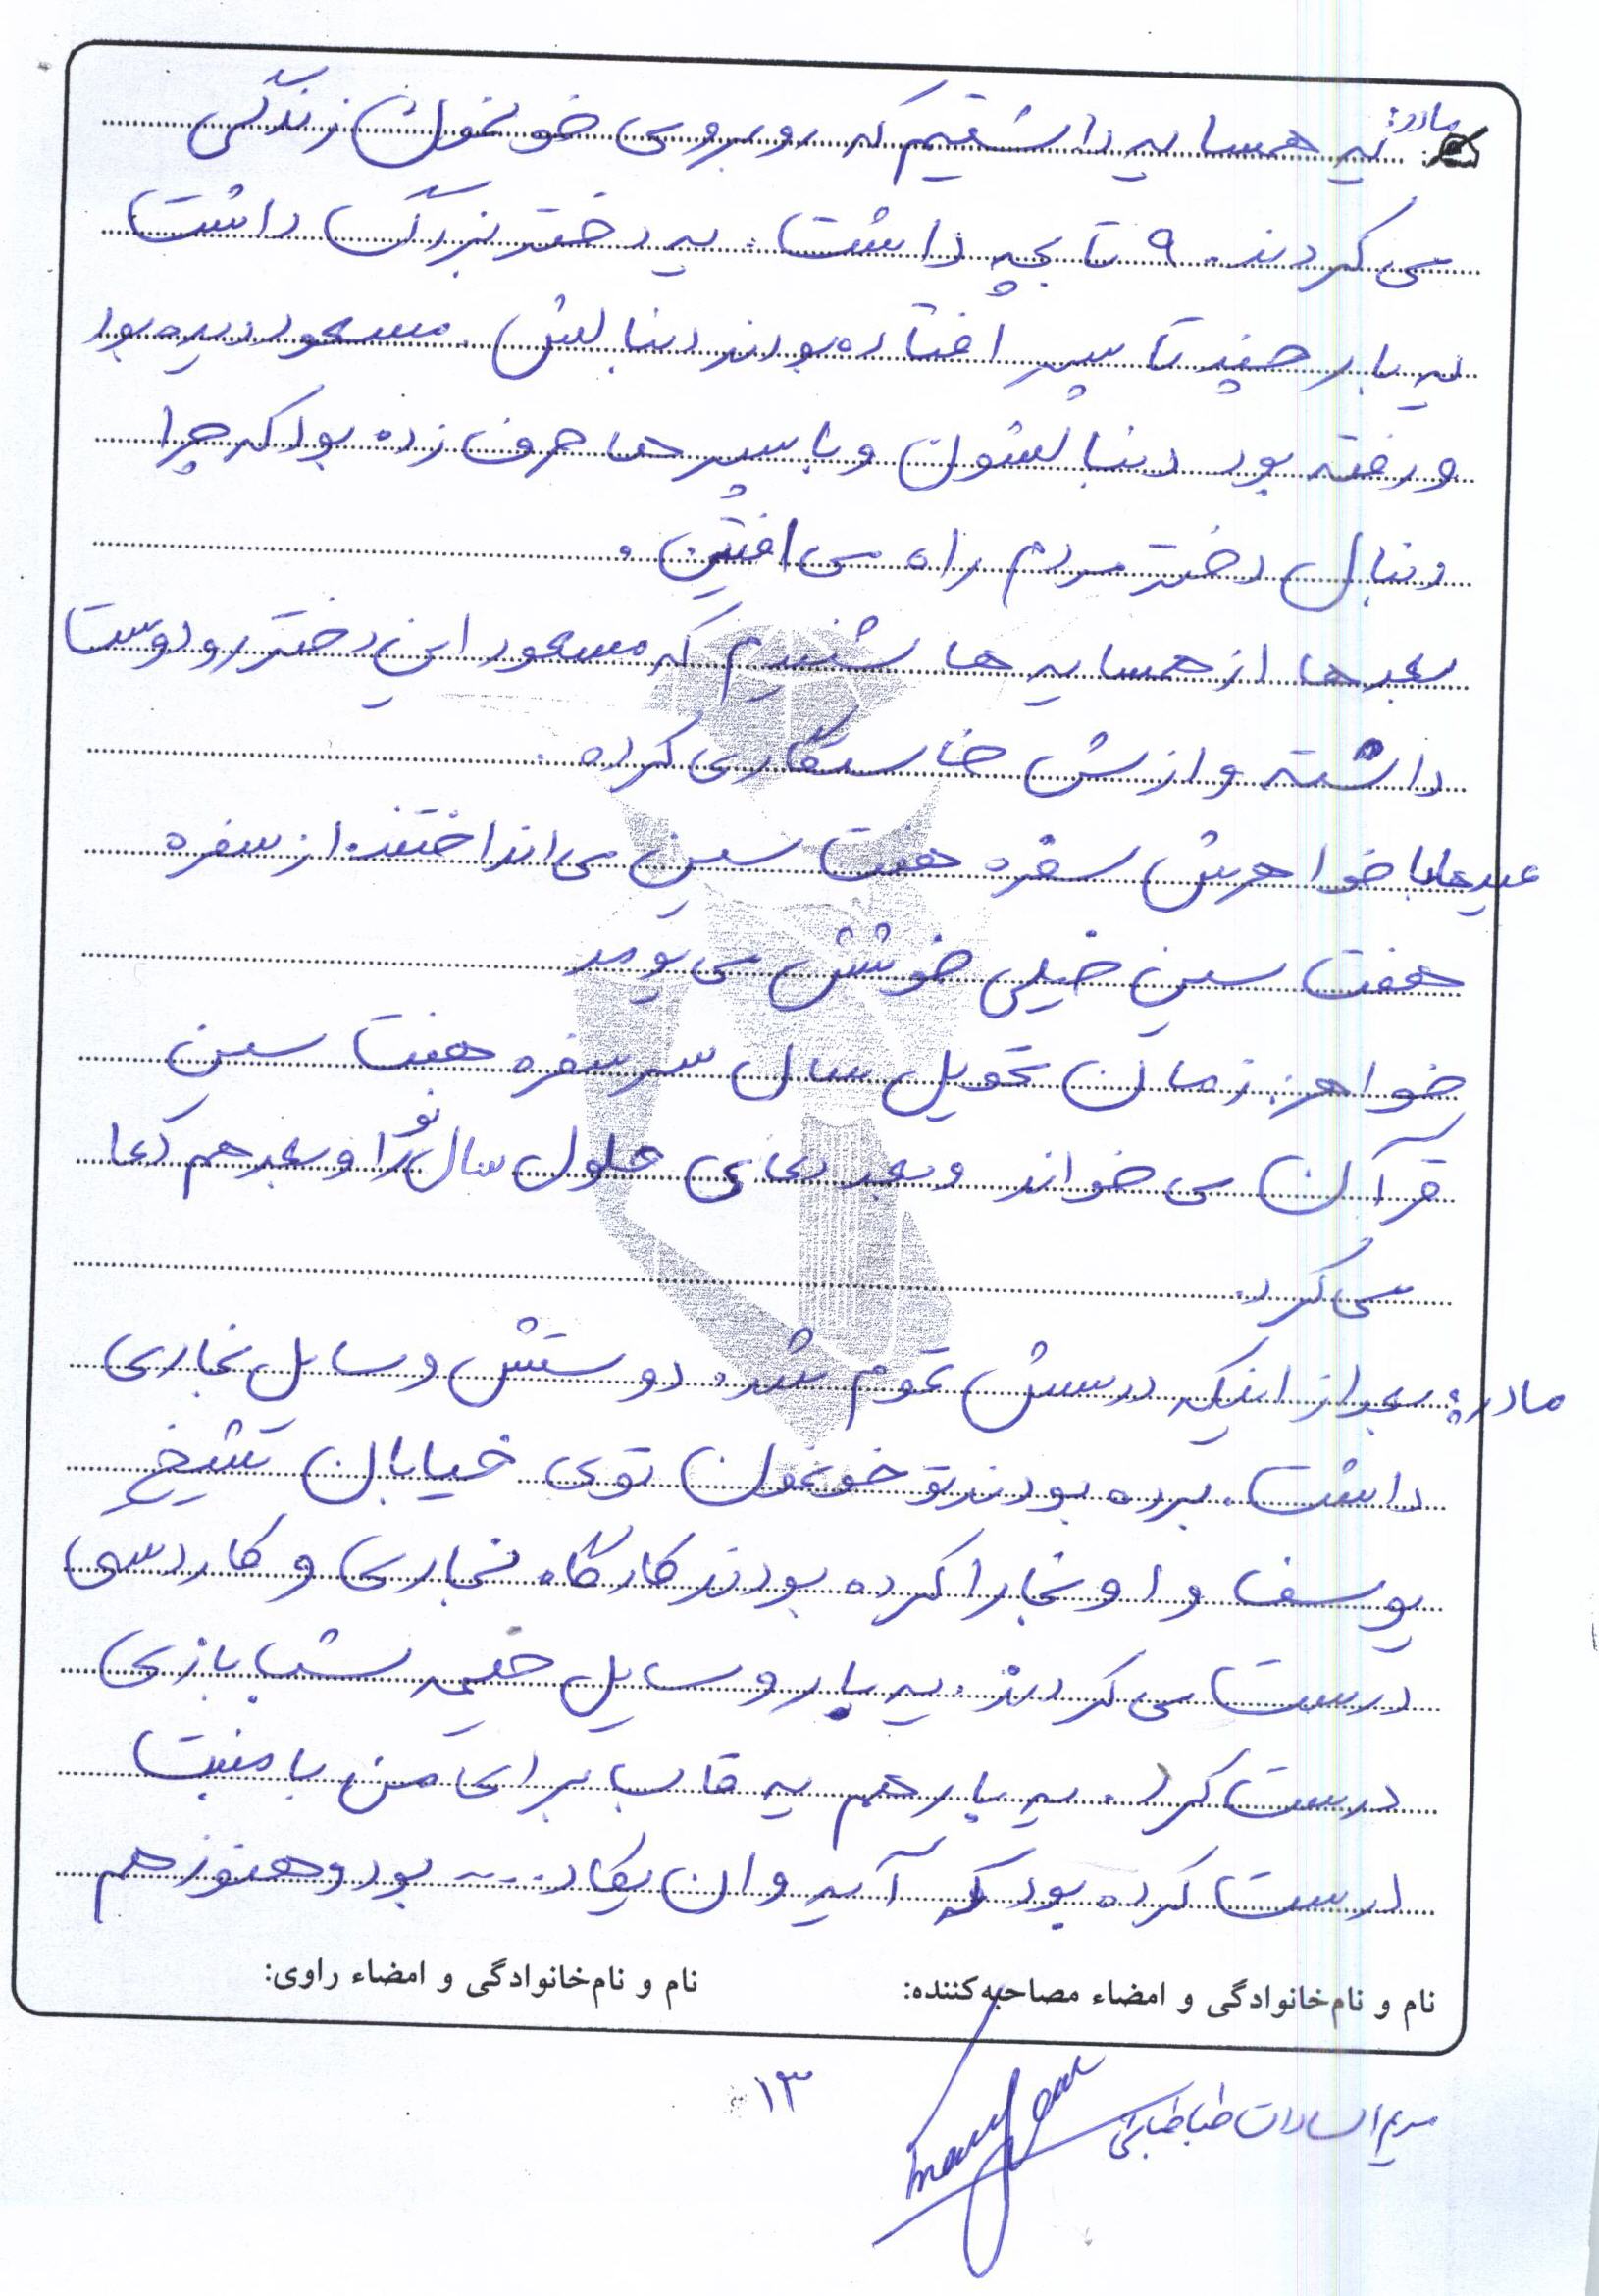 مادر:
یه همسایه داشتیم که روبروی خونمون زندگی
می کردند. ۹ تا بچه داشت. یه دختر بزرگ داشت
یه بار چند تا پسر افتاده بودند دنبالش. مسعود دیده بود
و رفته بود دنبالشون و با پسرها حرف زده بود که چرا
دنبال دختر مردم راه می افتین.
بعدها از همسایه ها شنیدم که مسعود این دختر رو دوست
داشته و ازش خاستگاری کرده.
عیدها با خواهرش سفره هفت سین می انداختند. از سفره
هفت سین خیلی خوشش می یومد
خواهر: زمان تحویل سال سر سفره هفت سین
قرآن می خواند و بعد دعای حلول سال نو را و بعد هم دعا
می کرد.
مادر: بعد از اینکه درسش تموم شد. دوستش وسایل نجاری
داشت. برده بودند تو خونمون توی خیابان شیخ
یوسف و اونجا را کرده بودند کارگاه نجاری و کار دستی
درست می کردند. یه بار وسایل خیمه شب بازی
درست کرد. یه بار هم یه قاب برای من با منبت
درست کرده بود که آیه وان یکاد.... بود و هنوز هم
نام و نام‌خانوادگی و امضاء مصاحبه‌کننده: نام و نام‌خانوادگی و امضاء راوی:
مریم السادات طباطبائی
۱۳